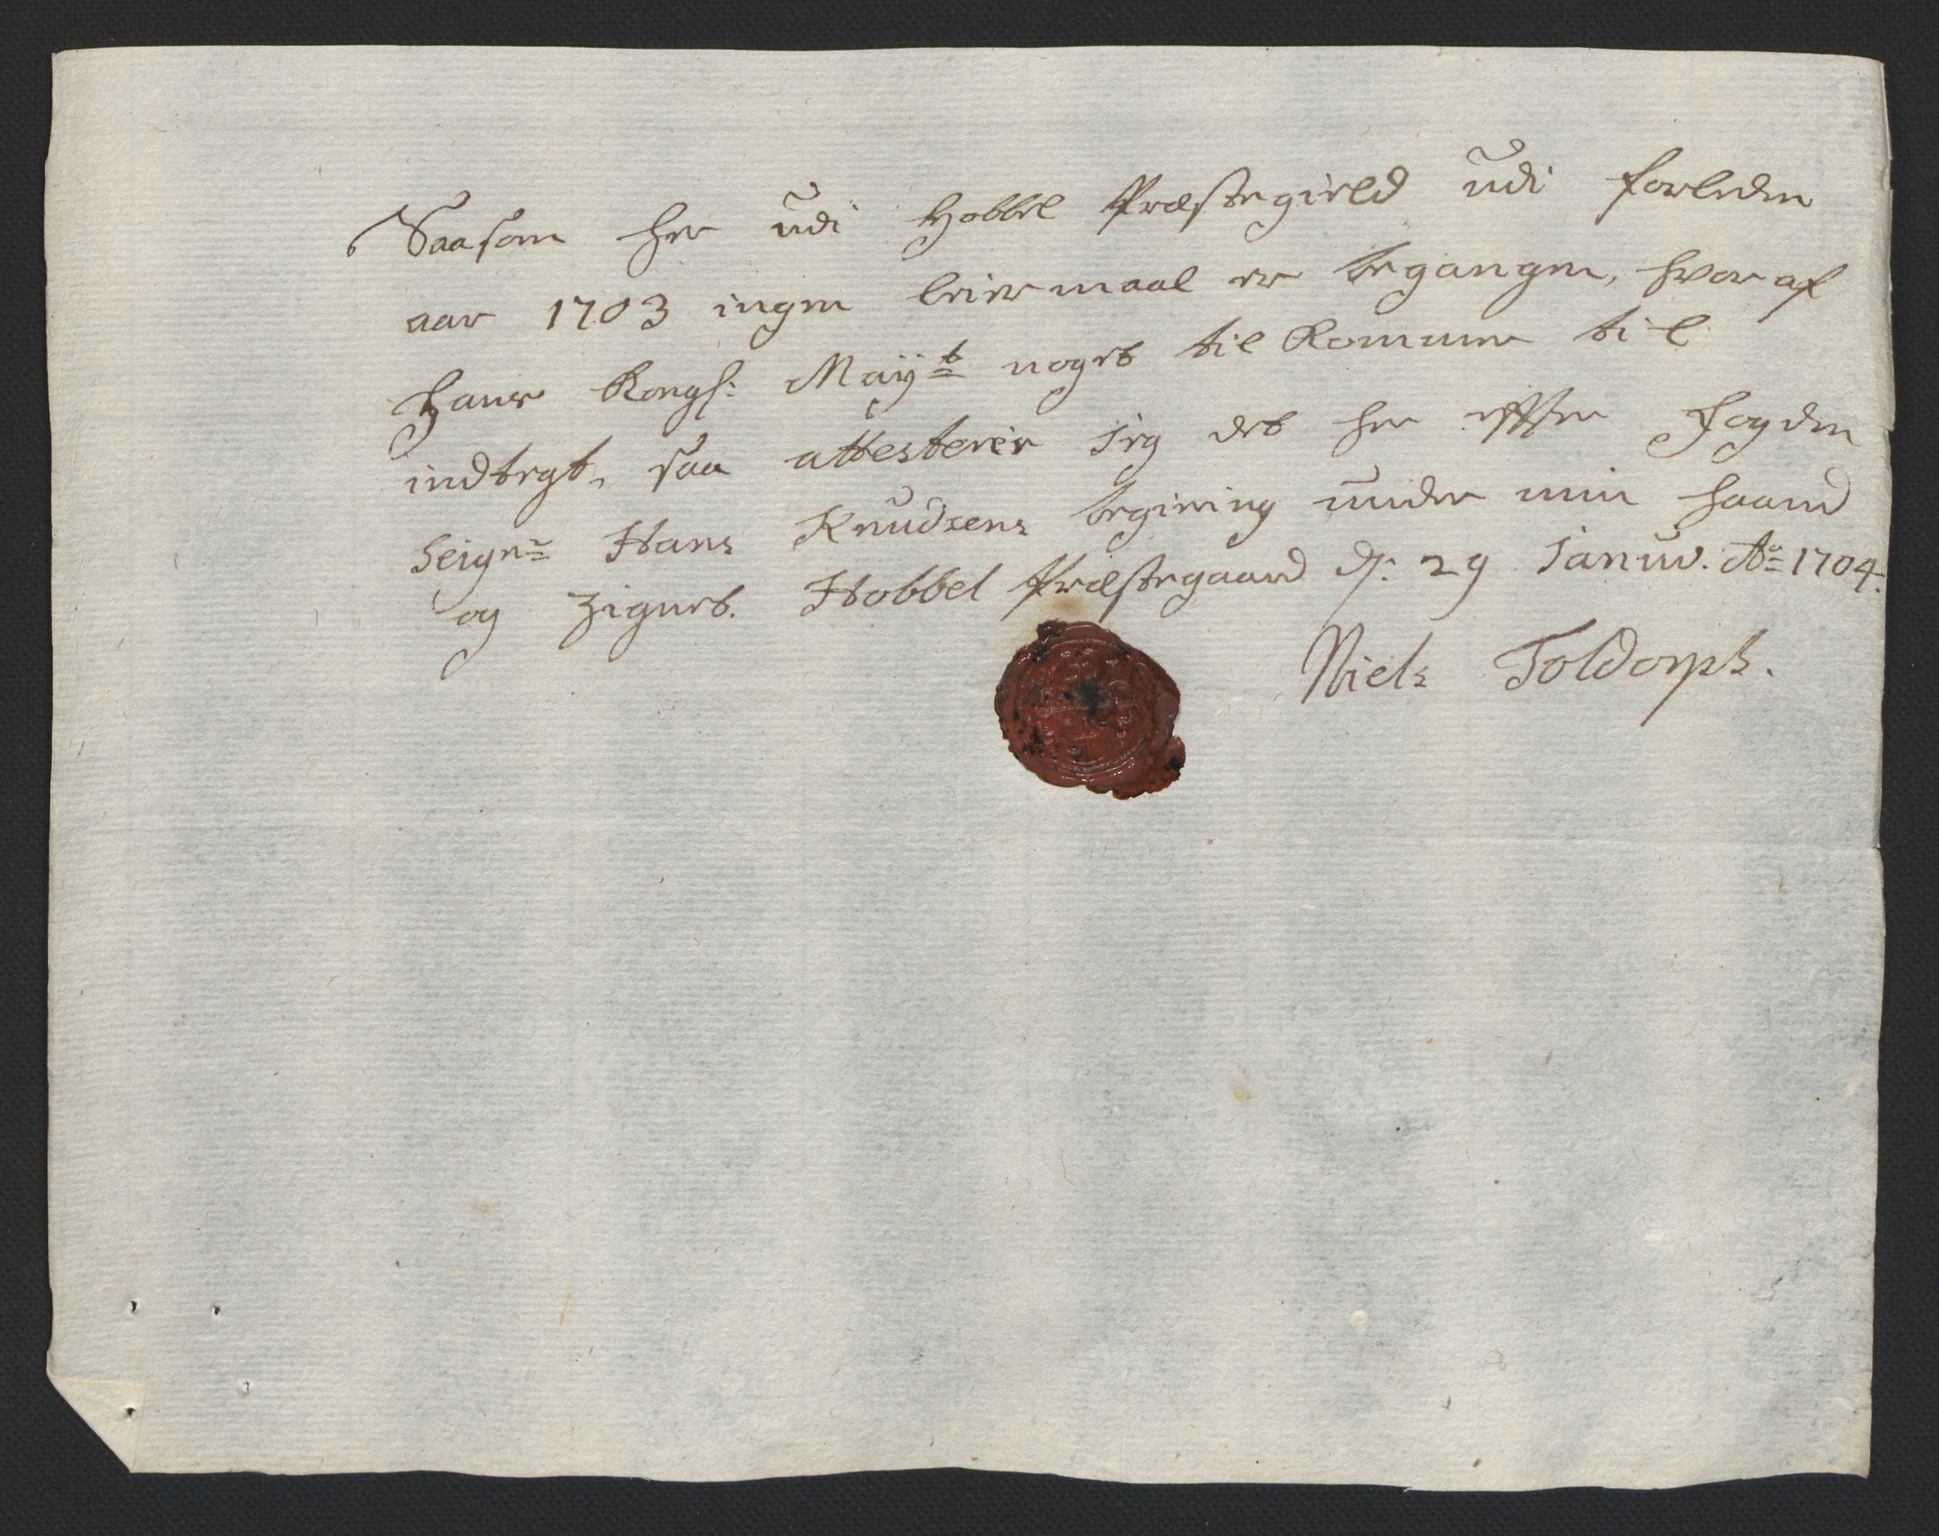 Saasom her udi Hobbel Præstegield udi forleden
aar 1703 ingen leiermaal er begangen, hvoraf
Hans Kongl: Mayt noget tilkommer til
indtegt, saa attesterer jeg det her efter fogden
Seignr Hans Knudsens begiering under min haand
og Zignet. Hobbel Præstegaard d: 29 Januv. Ao 1704.
Niels Toldorph.